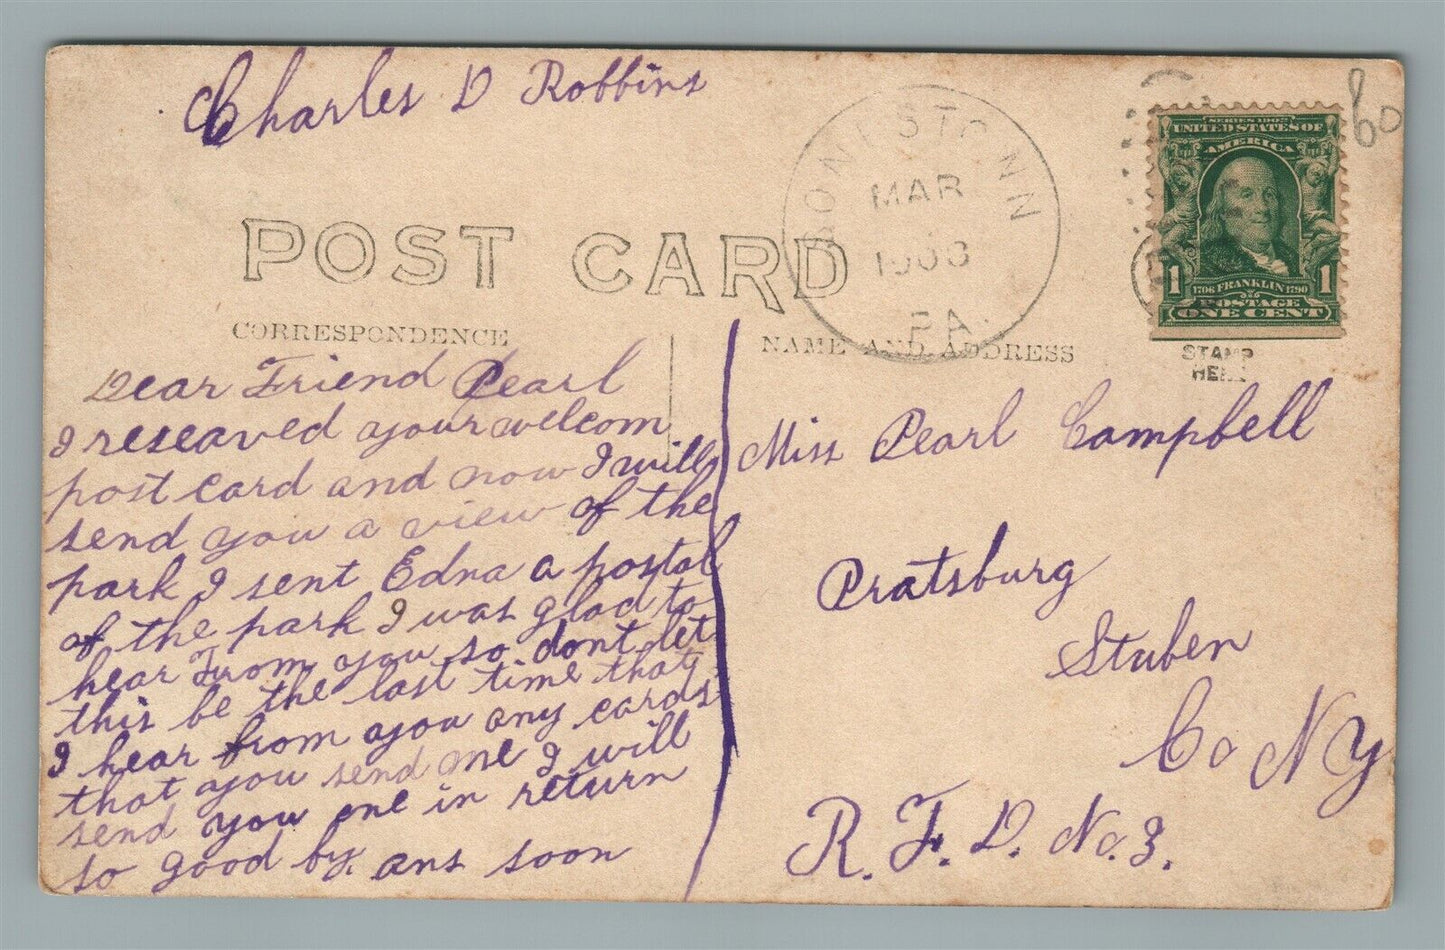 Charles D Robbins
POST CARD
CORRESPONDENCE
NAME AND ADDRESS
MAR
1908
PA.
SERIES 1902
UNITED STATES OF
AMERICA
1 1
1706 FRANKLIN 1790
POSTAGE
ONE CENT
STAMP
HERE
60
Dear Friend Pearl
I reseaved your welcom
post card and now I will
send you a view of the
park I sent Edna a postal
of the park I was glad to
hear From you so dont let
this be the last time that
I hear from you any cards
that you send me I will
send you one in return
so good by. ans soon
Miss Pearl Campbell
Pratsburg
Stuben
Co NY
R. F. D. No. 3.